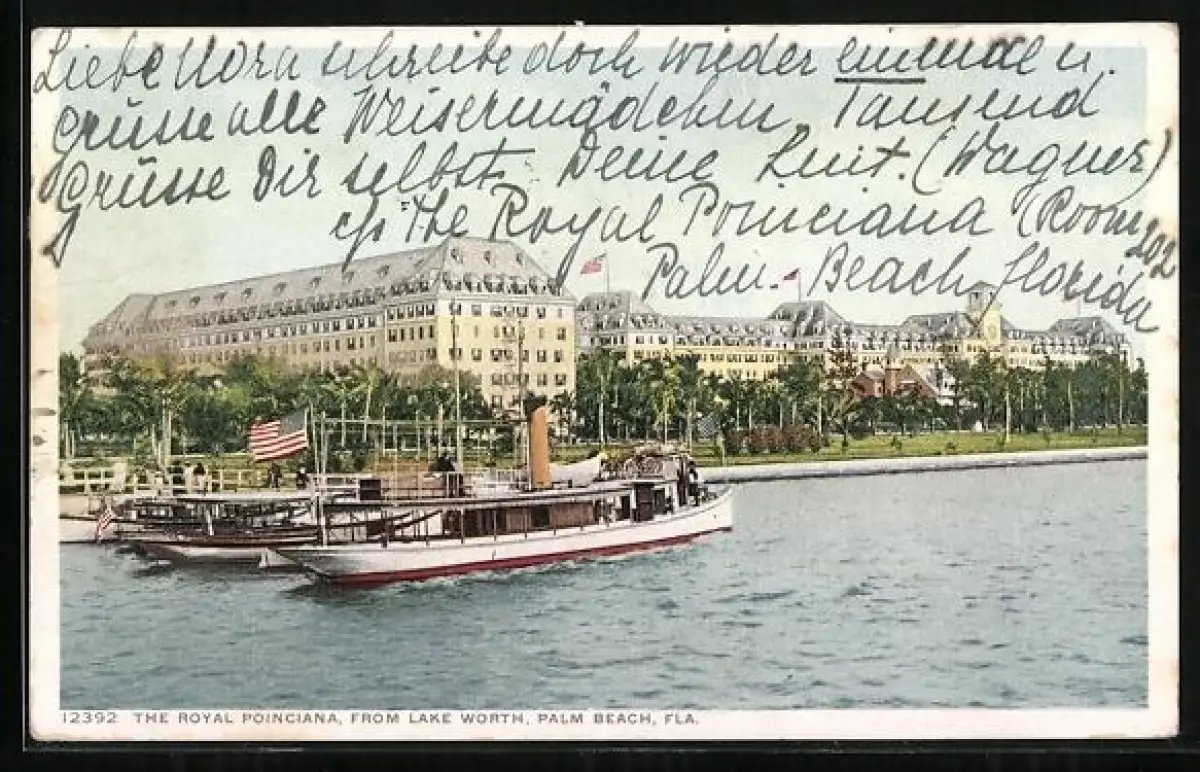 Liebe Nora schreibe doch wieder einmal u.
grüsse alle Weisermädchen, Tausend
Grüsse Dir selbst. Deine Luit. (Wagner)
c/o "The Royal Poinciana (Room 202
Palm-Beach, Florida
12392 THE ROYAL POINCIANA, FROM LAKE WORTH, PALM BEACH, FLA.